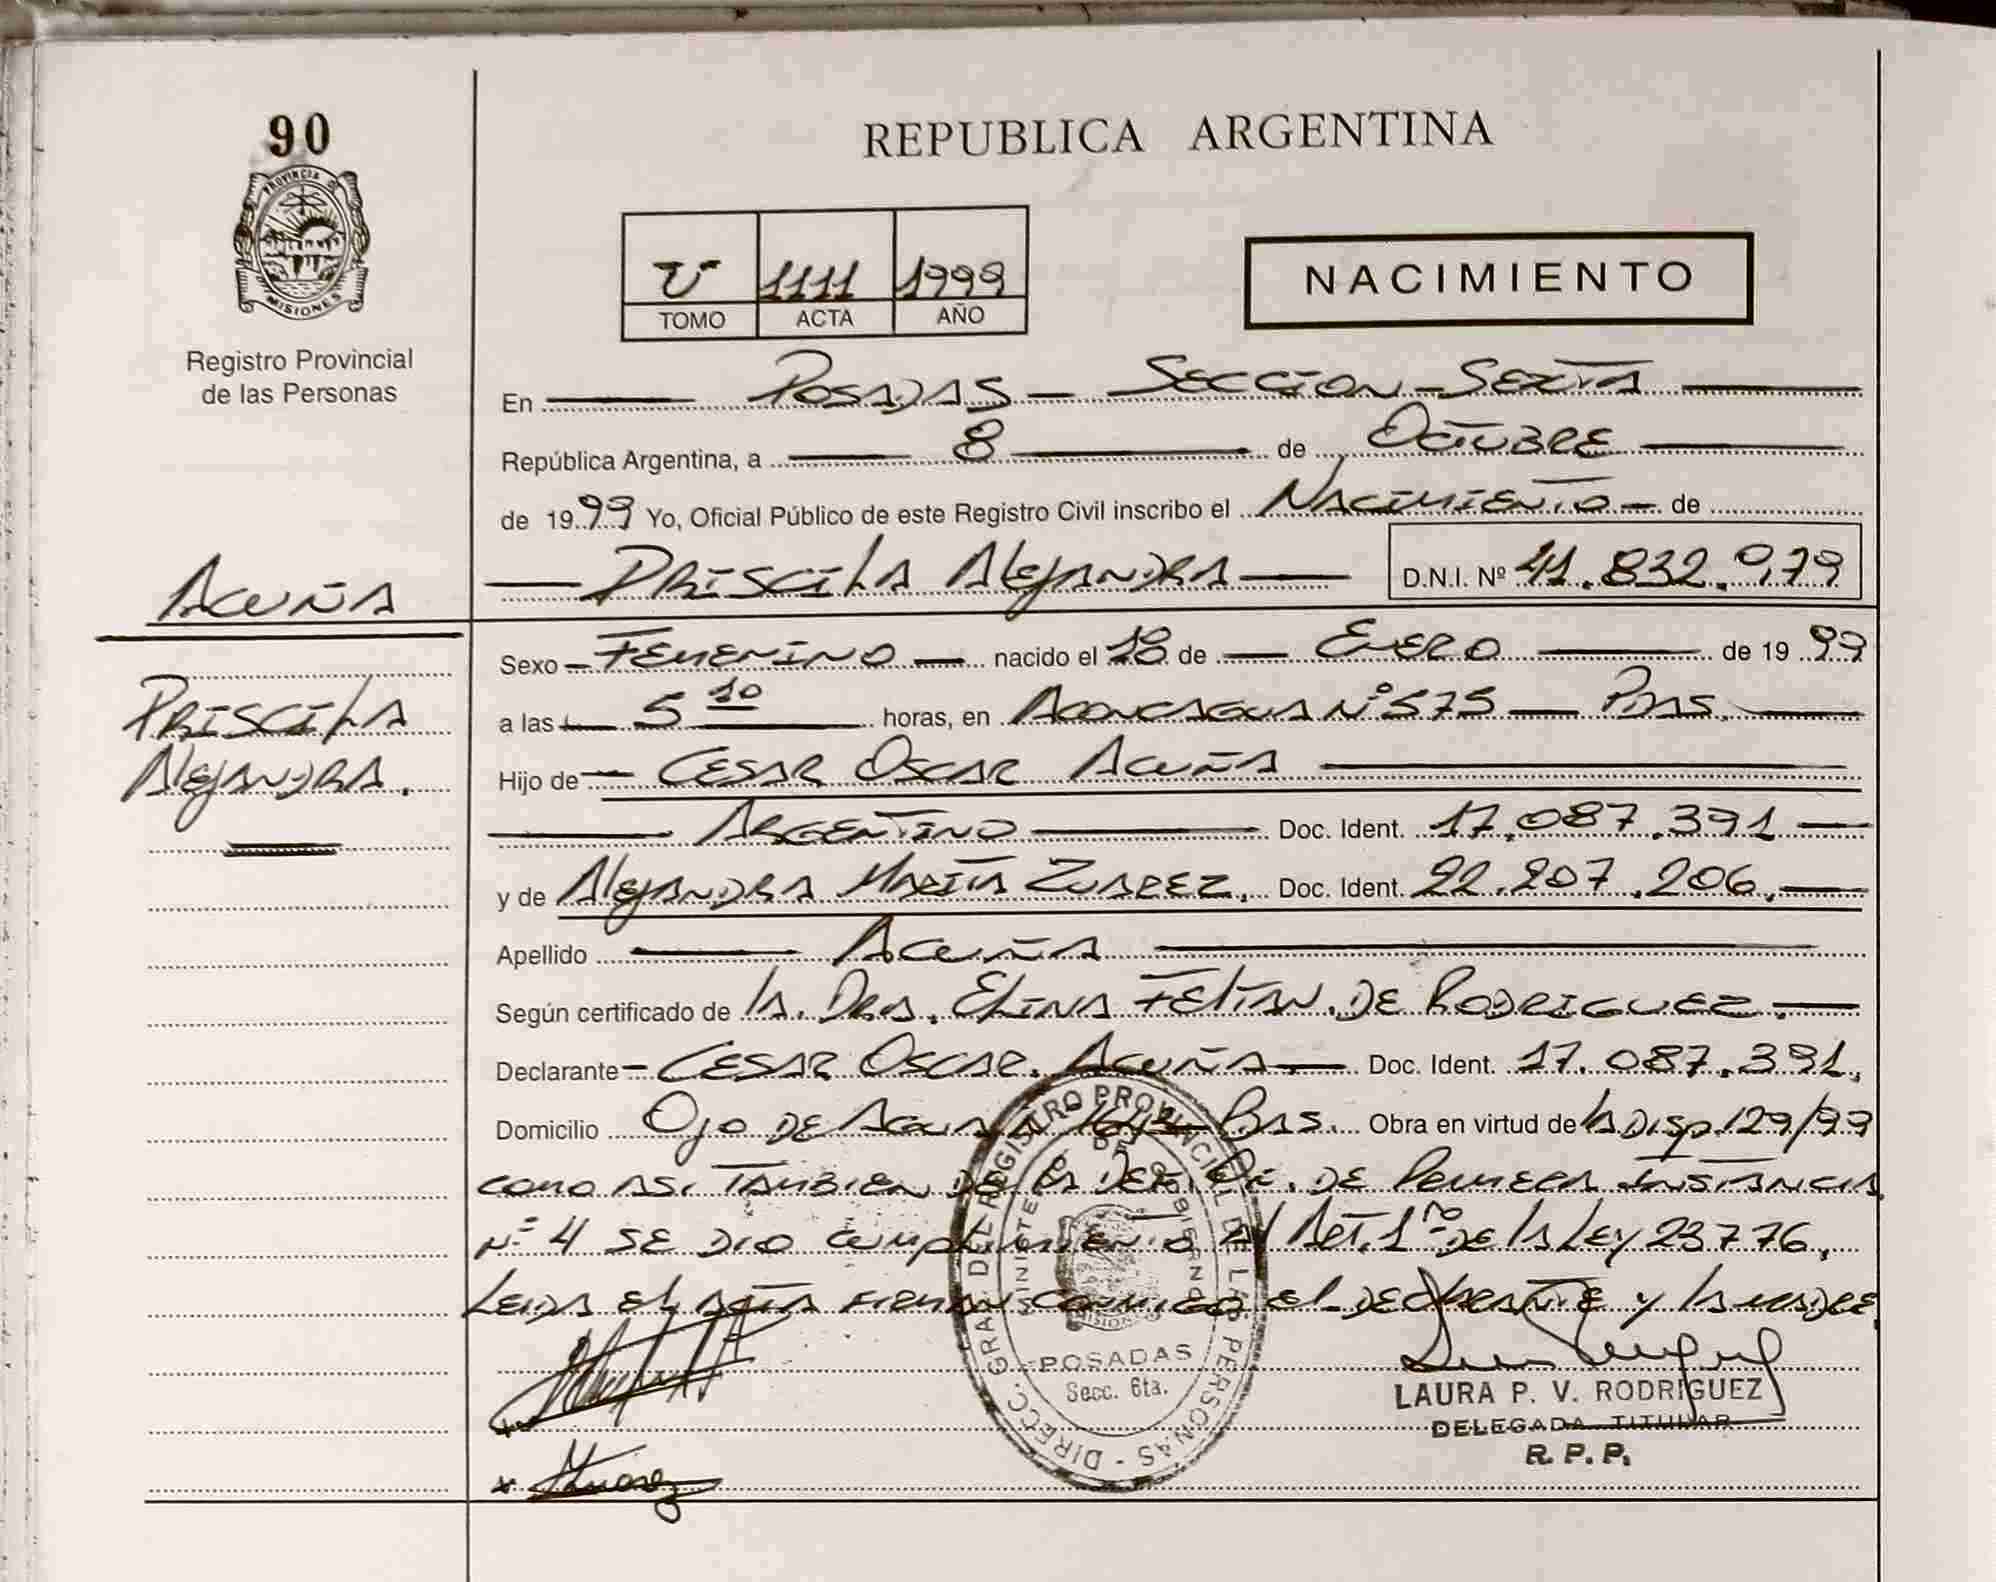 90
PROVINCIA DE
MISIONES
Registro Provincial
de las Personas
REPUBLICA ARGENTINA
U 1111 1999
TOMO ACTA AÑO
NACIMIENTO
En Posadas - Seccion - Sexta
República Argentina, a 8 de Octubre
de 1999 Yo, Oficial Público de este Registro Civil inscribo el Nacimiento - de
Priscila Alejandra D.N.I. Nº 41.832.979
Acuña
Priscila
Alejandra.
Sexo Femenino nacido el 18 de Enero de 1999
a las 5 10 horas, en Aconcagua Nº 575 - Pdas.
Hijo de Cesar Oscar Acuña
Argentino Doc. Ident. 17.087.391
y de Alejandra Marita Zuarez, Doc. Ident. 22.207.206,
Apellido Acuña
Según certificado de la Dra. Elina Feltan de Rodriguez.
Declarante Cesar Oscar Acuña Doc. Ident. 17.087.391,
Domicilio Ojo de Agua Pdas. Obra en virtud de la Disp. 129/99
como asi tambien de la de Primera Instancia
nº 4 se dio cumplimiento al Art. 1ro de la Ley 23776,
Leida el acta firman conmigo el declarante y la madre
DIRECC. GRAL. DEL REGISTRO PROVINCIAL DE LAS PERSONAS
MINISTERIO DE GOBIERNO
MISIONES
POSADAS
Secc. 6ta.
LAURA P. V. RODRIGUEZ
DELEGADA TITULAR
R. P. P.